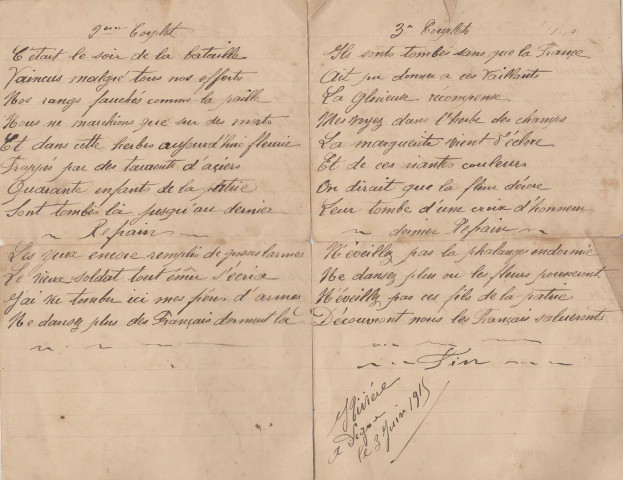 2ème Couplet
C'était le soir de la bataille
Vaincus malgré tous nos efforts
Nos rangs fauchés comme la paille
Nous ne marchions que sur des morts
Et dans cette herbes aujourd'hui fleurie
Frappés par des torrents d'aciers
Quarante enfants de la patrie
Sont tombés là jusqu'au dernier
Refrain
Les yeux encore remplis de grosses larmes
Le vieux soldat tout émue s'écria
J'ai vu tomber ici mes frères d'armes
Ne dansez plus des Français dorment là
3e Couplet
Ils sont tombés sans que la France
Ait pu donner a ces vaillants
La glorieuse récompense
Mes voyez dans l'herbe des champs
La marguerite vient d'éclore
Et de ces riantes couleurs
On dirait que la fleur décore
Leur tombe d'une croix d'honneur
dernier Refrain
N'éveillez pas la phalange endormie
Ne dansez plus ou les fleurs pousseront
N'éveillez pas ces fils de la patrie
Découvront nous les Français salueronts
Fin
a Digne
le 3 Juin 1915